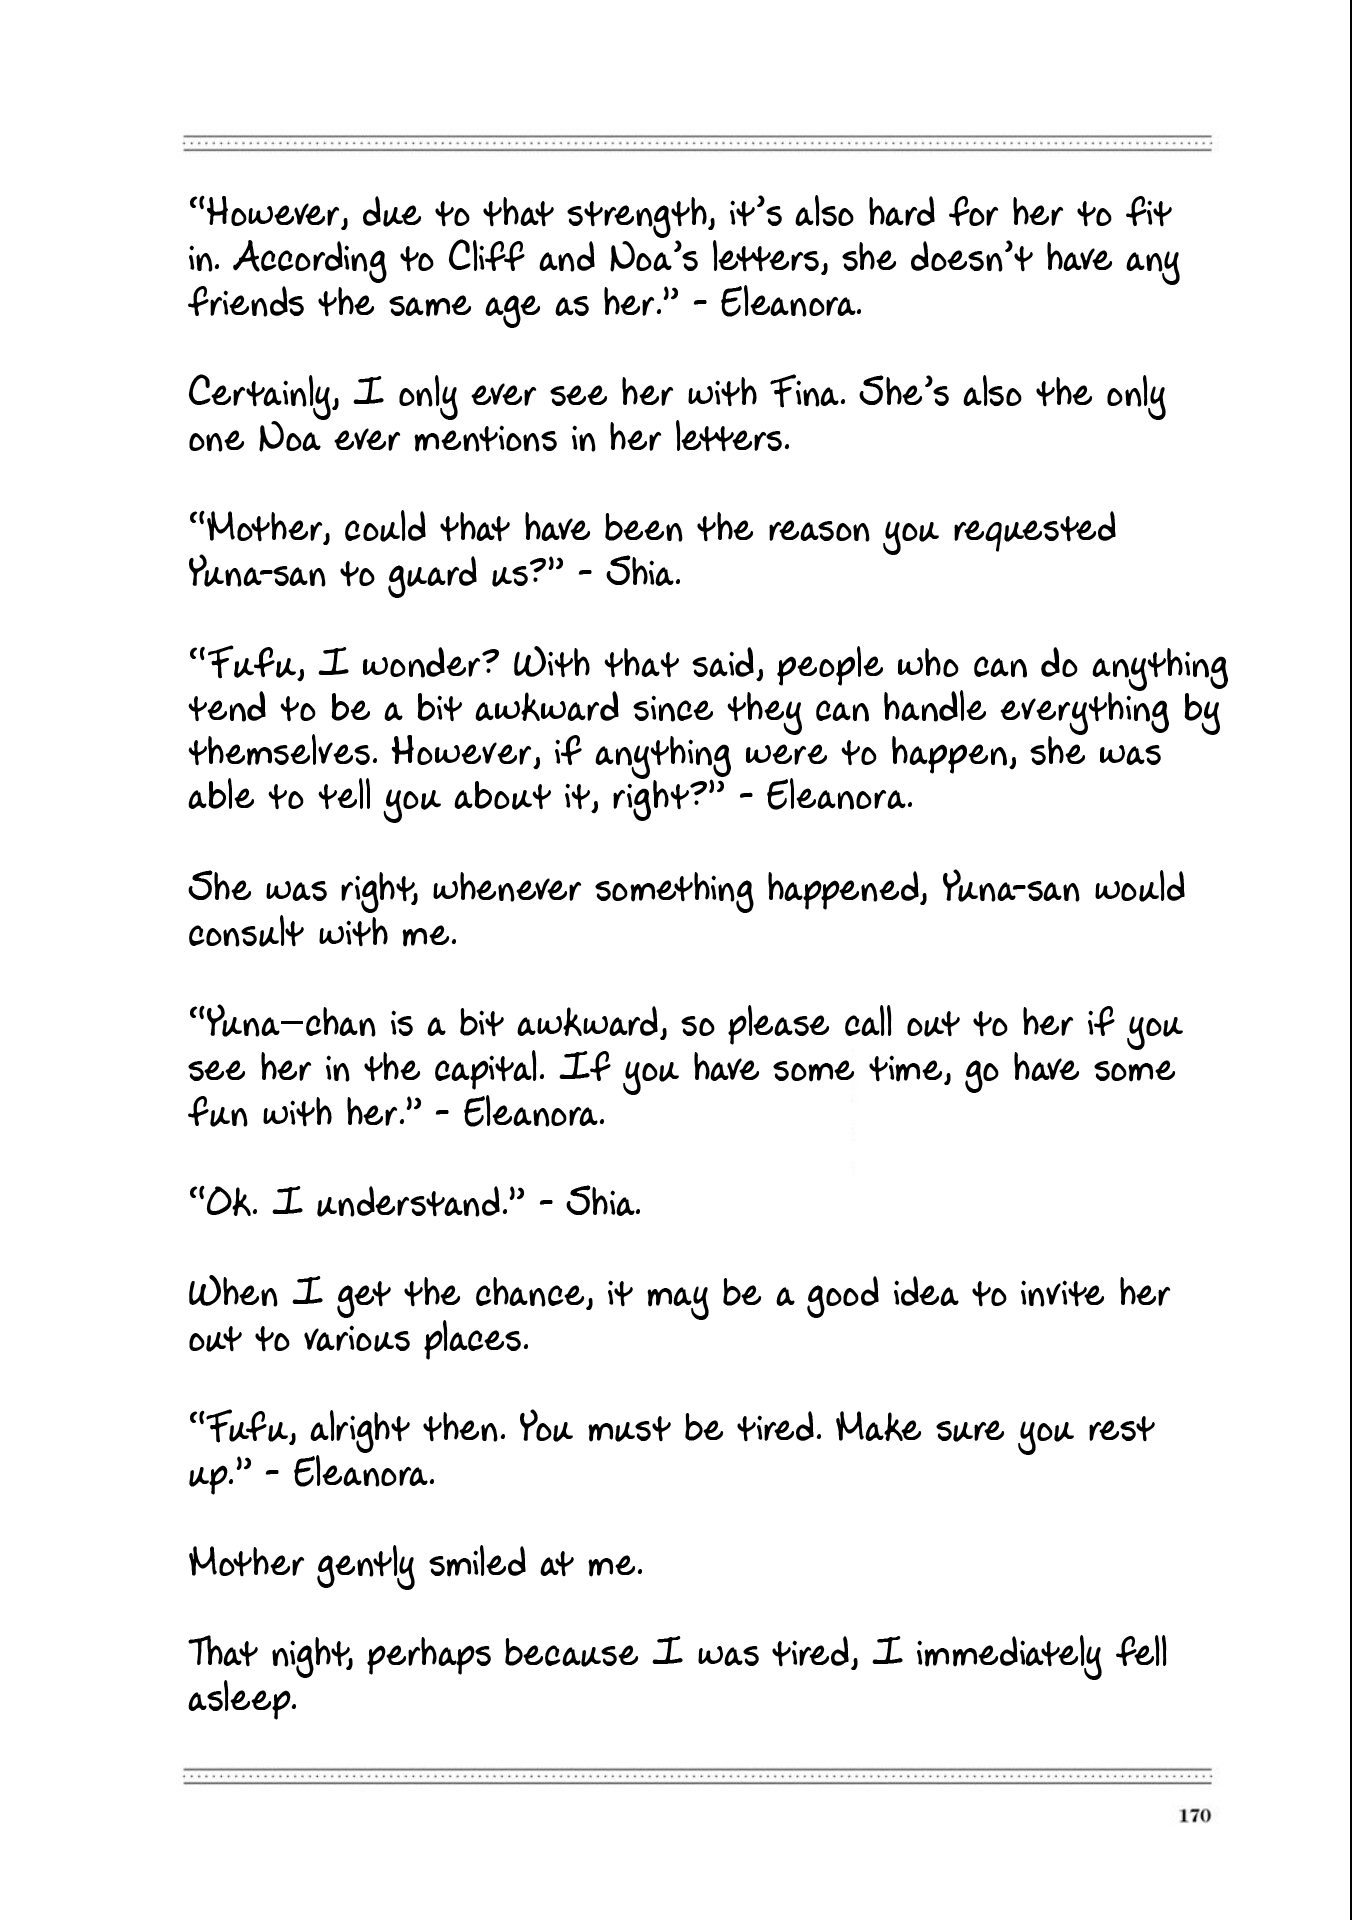 “However, due to that strength, it’s also hard for her to fit
in. According to Cliff and Noa’s letters, she doesn’t have any
friends the same age as her.” - Eleanora.
Certainly, I only ever see her with Fina. She’s also the only
one Noa ever mentions in her letters.
“Mother, could that have been the reason you requested
Yuna-san to guard us?” - Shia.
“Fufu, I wonder? With that said, people who can do anything
tend to be a bit awkward since they can handle everything by
themselves. However, if anything were to happen, she was
able to tell you about it, right?” - Eleanora.
She was right, whenever something happened, Yuna-san would
consult with me.
“Yuna—chan is a bit awkward, so please call out to her if you
see her in the capital. If you have some time, go have some
fun with her.” - Eleanora.
“Ok. I understand.” - Shia.
When I get the chance, it may be a good idea to invite her
out to various places.
“Fufu, alright then. You must be tired. Make sure you rest
up.” - Eleanora.
Mother gently smiled at me.
That night, perhaps because I was tired, I immediately fell
asleep.
170